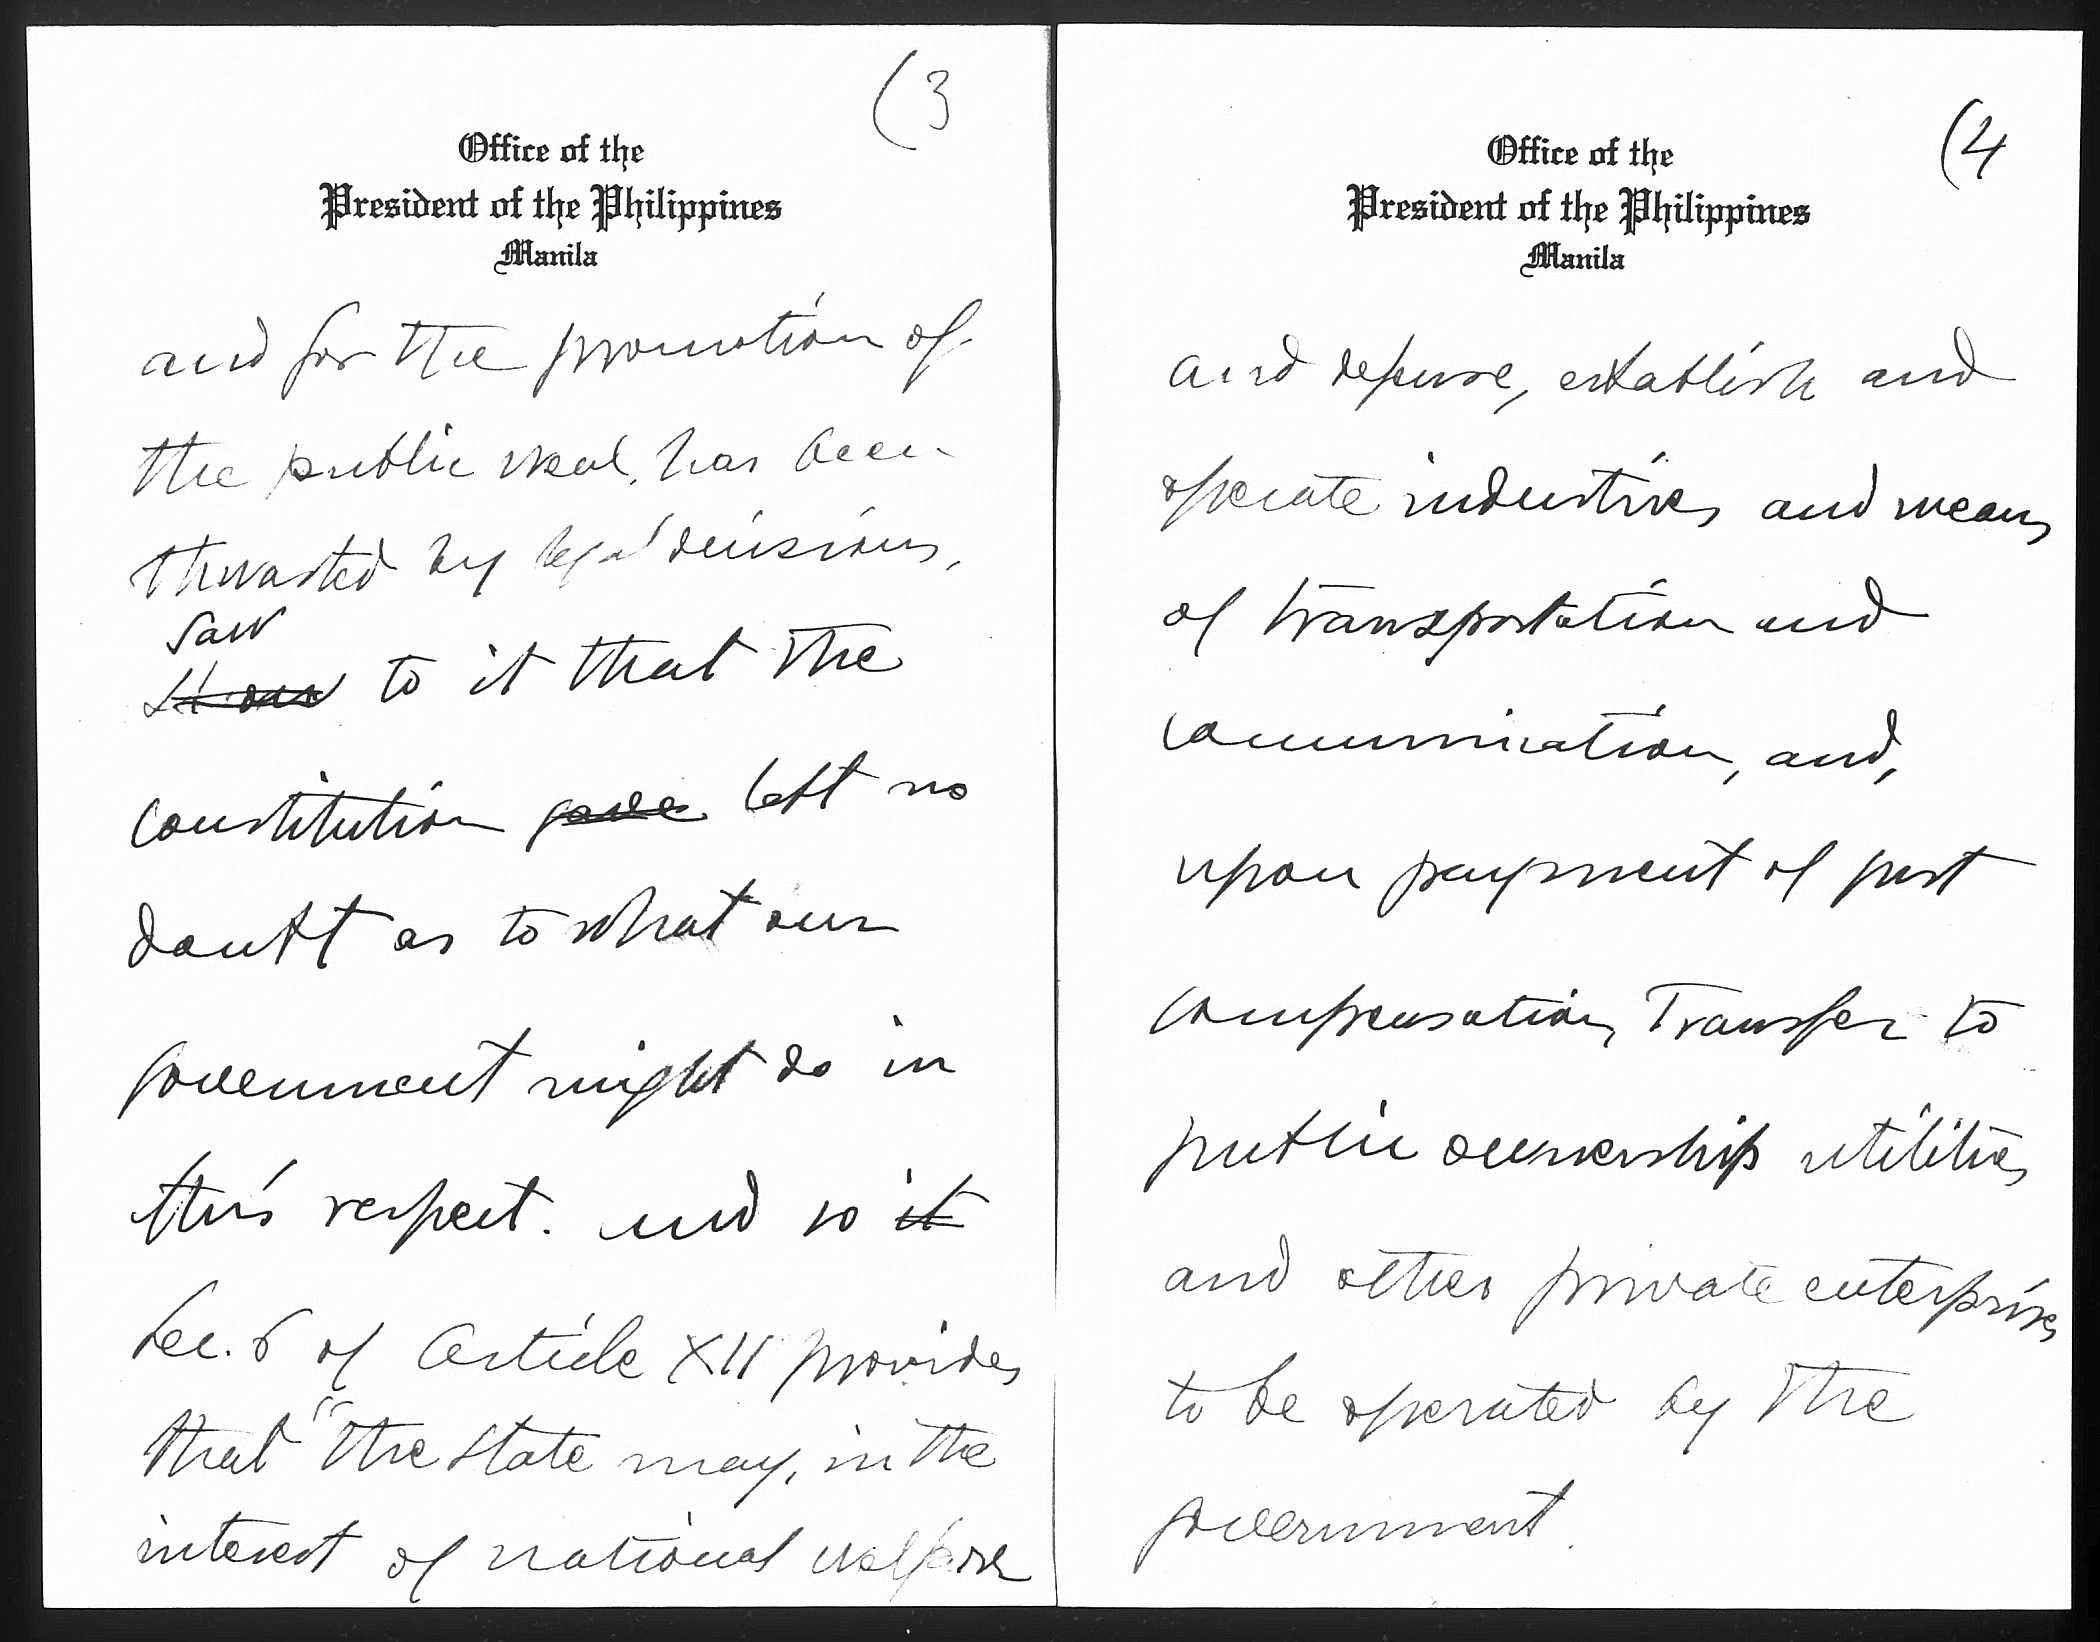 (3
Office of the
President of the Philippines
Manila
and for the promotion of
the public weal, has been
thwarted by legal decisions,
saw
to it that the
constitution gave left no
doubt as to what our
government might do in
this respect. and so it
Sec. 6 of Article XII provides
that "the state may, in the
interest of national welfare
(4
Office of the
President of the Philippines
Manila
and defense, establish and
operate industries and means
of transportation and
communication, and,
upon payment of just
compensation, transfer to
public ownership utilities
and other private enterprises
to be operated by the
government.